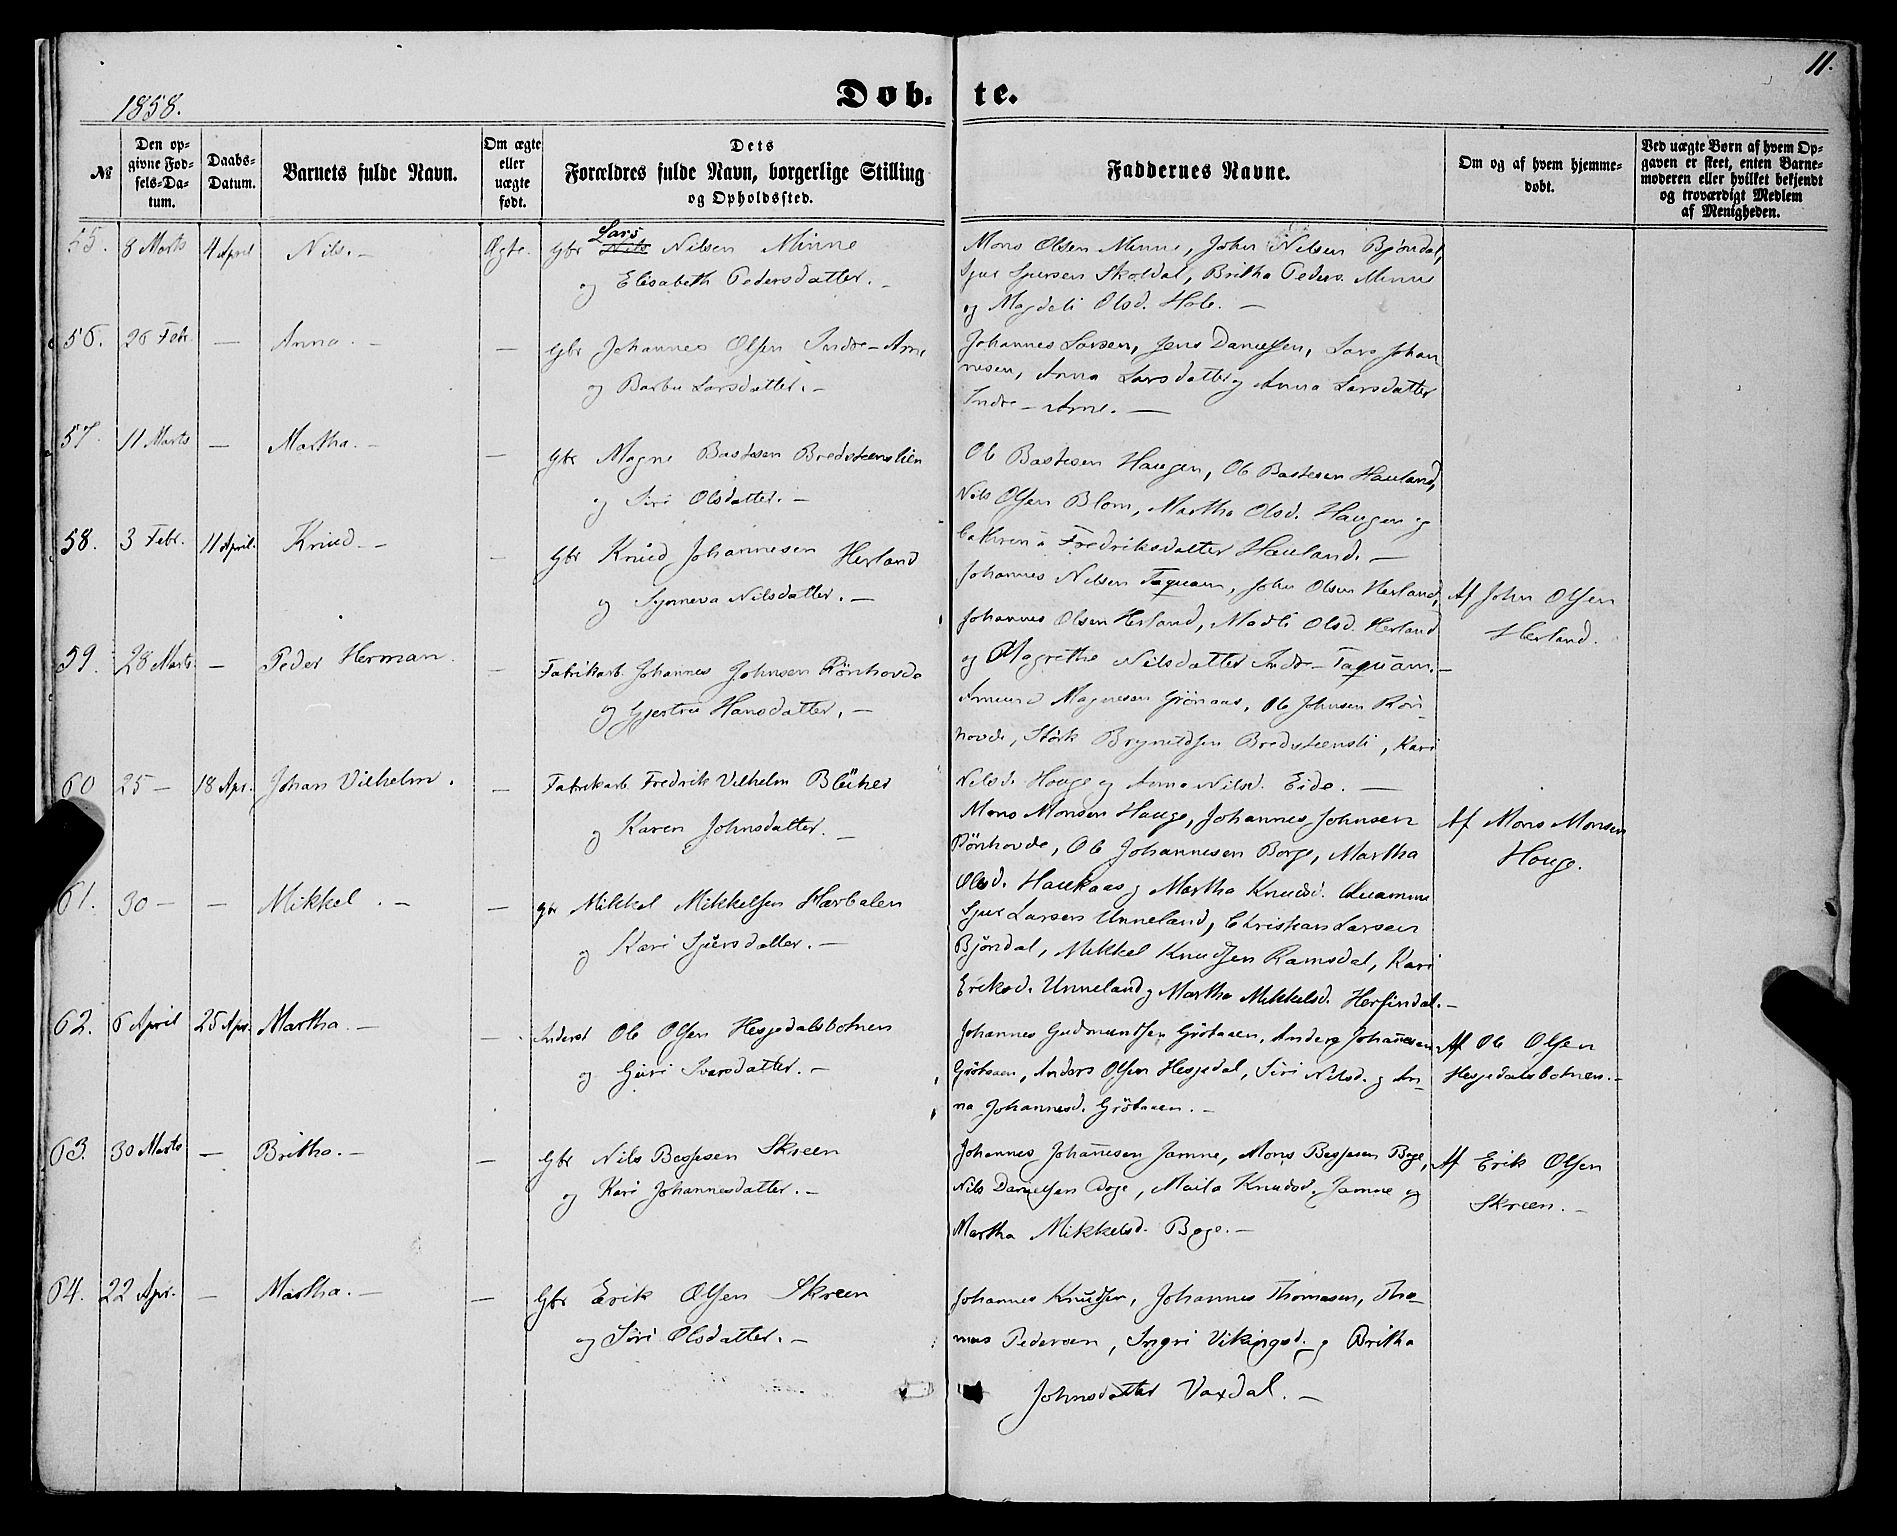 11.
1858.
Døb-te.
№
Den op-
givne Fød-
sels-Da-
tum.
Daabs-
Datum.
Barnets fulde Navn.
Om ægte
eller
uægte
født.
Dets
Forældres fulde Navn, borgerlige Stilling
og Opholdssted.
Faddernes Navne.
Om og af hvem hjemme-
døbt.
Ved uægte Børn af hvem Op-
gaven er skeet, enten Barne-
moderen eller hvilket bekjendt
og troværdigt Medlem
af Menigheden.
55. 8 Marts 4 April Nils. - Ægte. Gbr Lars Nils Nilsen Minne
og Elisabeth Pedersdatter. -
Mons Olsen Minne, John Nilsen Bjøndal,
Sjur Sjursen Skoldal, Britha Peders. Minne
og Magdeli Olsd. Hole. -
56. 26 Febr. - Anna. - - Gbr Johannes Olsen Indre-Arne
og Barbra Larsdatter. -
Johannes Larsen, Jens Danielsen, Lars Johan
nesen, Anna Larsdatter og Anna Larsdatter
Indre-Arne. -
57. 11 Marts - Martha. - - Gbr Magne Bastesen Bredsteenslien
og Siri Olsdatter. -
Ole Bastesen Haugen, Ole Bastesen Hauland,
Nils Olsen Blom, Martha Olsd. Haugen og
Cathrina Fredriksdatter Hauland. -
58. 3 Febr. 11 April. Knud. - - Gbr Knud Johannesen Herland
og Synneva Nilsdatter. -
Johannes Nilsen Taquam, John Olsen Herland,
Johannes Olsen Herland, Madli Olsd. Herland
og Magrethe Nilsdatter Indre-Taquam. -
Af John Olsen
Herland.
59. 28 Marts. - Peder Herman. - Fabrikarb. Johannes Johnsen Rönhovde
og Gjertru Hansdatter. -
Amund Magnesen Grönaas, Ole Johnsen Rön-
hovde, Störk Brynildsen Bredsteensli, Kari
Nilsd. Houge og Anna Nilsd. Eide. -
60 25 - 18 Apr. Johan Vilhelm. - Fabrikarb. Fredrik Vilhelm Blücher
og Karen Johnsdatter. -
Mons Monsen Hauge, Johannes Johnsen
Rönhovde, Ole Johannesen Borge, Martha
Olsd. Haukaas og Martha Knudsd. Quamme
Af Mons Monsen
Houge.
61. 30 - - Mikkel. - - Gbr Mikkel Mikkelsen Hærbalen
og Kari Sjursdatter. -
Sjur Larsen Unneland, Christian Larsen
Bjöndal, Mikkel Knudsen Ramsdal, Kari
Eriksd. Unneland og Martha Mikkelsd. Herfindal. -
62. 6 April 25 Apr. Martha. - - Inderst Ole Olsen Hesjedalsbotnen
og Guri Ivarsdatter. -
Johannes Gudmundsen Grötaaen, Anders Johanesen
Grötaaen, Anders Olsen Hesjedal, Siri Nilsd. og An-
na Johannesd. Grötaaen. -
Af Ole Olsen
Hesjedalsbotnen. -
63. 30 Marts - Britha. - - Gbr Nils Besjesen Skreen
og Kari Johannesdatter. -
Johannes Johanesen Jamne, Mons Besjesen Boge,
Nils Danielsen Boge, Maila Knudsd. Jamne og
Martha Mikkelsd. Boge. -
Af Erik Olsen
Skreen. -
64. 22 Apr. - Martha. - - Gbr Erik Olsen Skreen
og Siri Olsdatter. -
Johannes Knudsen, Johannes Thomasen, Tho-
mas Pedersen, Ingri Vikingsd. og Britha
Johnsdatter Vaxdal. -